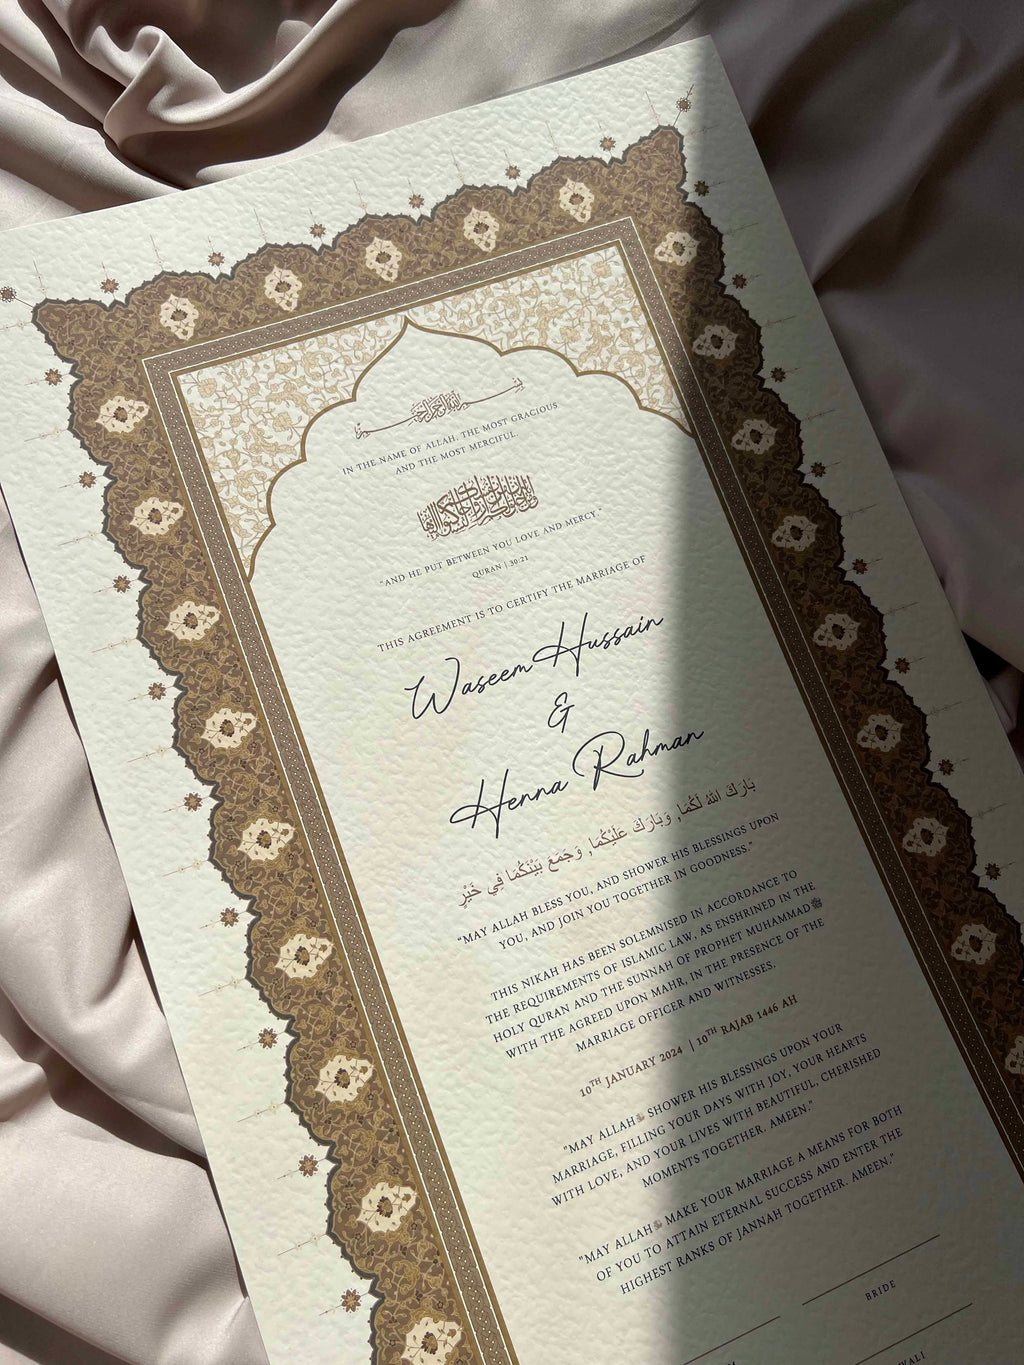 بسم الله الرحمن الرحيم
IN THE NAME OF ALLAH, THE MOST GRACIOUS
AND THE MOST MERCIFUL.
"AND HE PUT BETWEEN YOU LOVE AND MERCY."
QURAN | 30:21
THIS AGREEMENT IS TO CERTIFY THE MARRIAGE OF
Waseem Hussain
&
Henna Rahman
بَارَكَ اللهُ لَكُمَا, وَبَارَكَ عَلَيْكُمَا, وَجَمَعَ بَيْنَكُمَا فِي خَيْرٍ
"MAY ALLAH BLESS YOU, AND SHOWER HIS BLESSINGS UPON
YOU, AND JOIN YOU TOGETHER IN GOODNESS."
THIS NIKAH HAS BEEN SOLEMNISED IN ACCORDANCE TO
THE REQUIREMENTS OF ISLAMIC LAW, AS ENSHRINED IN THE
HOLY QURAN AND THE SUNNAH OF PROPHET MUHAMMADﷺ
WITH THE AGREED UPON MAHR, IN THE PRESENCE OF THE
MARRIAGE OFFICER AND WITNESSES.
10TH JANUARY 2024 | 10TH RAJAB 1446 AH
"MAY ALLAH SHOWER HIS BLESSINGS UPON YOUR
MARRIAGE, FILLING YOUR DAYS WITH JOY, YOUR HEARTS
WITH LOVE, AND YOUR LIVES WITH BEAUTIFUL, CHERISHED
MOMENTS TOGETHER. AMEEN."
"MAY ALLAH MAKE YOUR MARRIAGE A MEANS FOR BOTH
OF YOU TO ATTAIN ETERNAL SUCCESS AND ENTER THE
HIGHEST RANKS OF JANNAH TOGETHER. AMEEN."
BRIDE